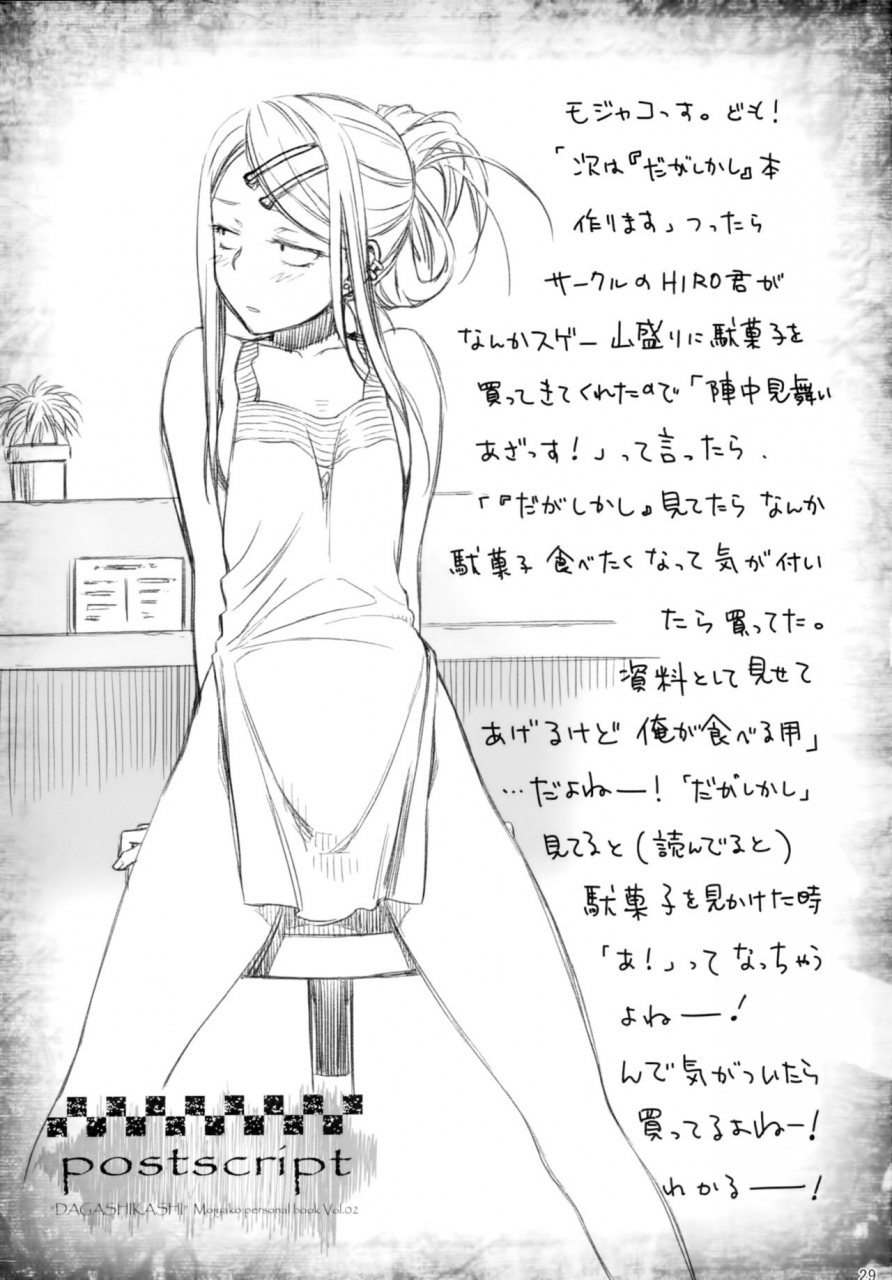 モジャコっす。ども！
「次は『だがしかし』本
作ります」つったら
サークルのHIRO君が
なんかスゲー山盛りに駄菓子を
買ってきてくれたので「陣中見舞い
あざっす！」って言ったら、
「『だがしかし』見てたら なんか
駄菓子 食べたくなって 気が付い
たら 買ってた。
資料として見せて
あげるけど 俺が食べる用」
…だよねー！「だがしかし」
見てると(読んでると)
駄菓子を見かけた時
「あ！」ってなっちゃう
よねー！
んで気がついたら
買ってるよねー！
わかるー！
postscript
"DAGASHIKASHI" Mojyako personal book Vol.02
29